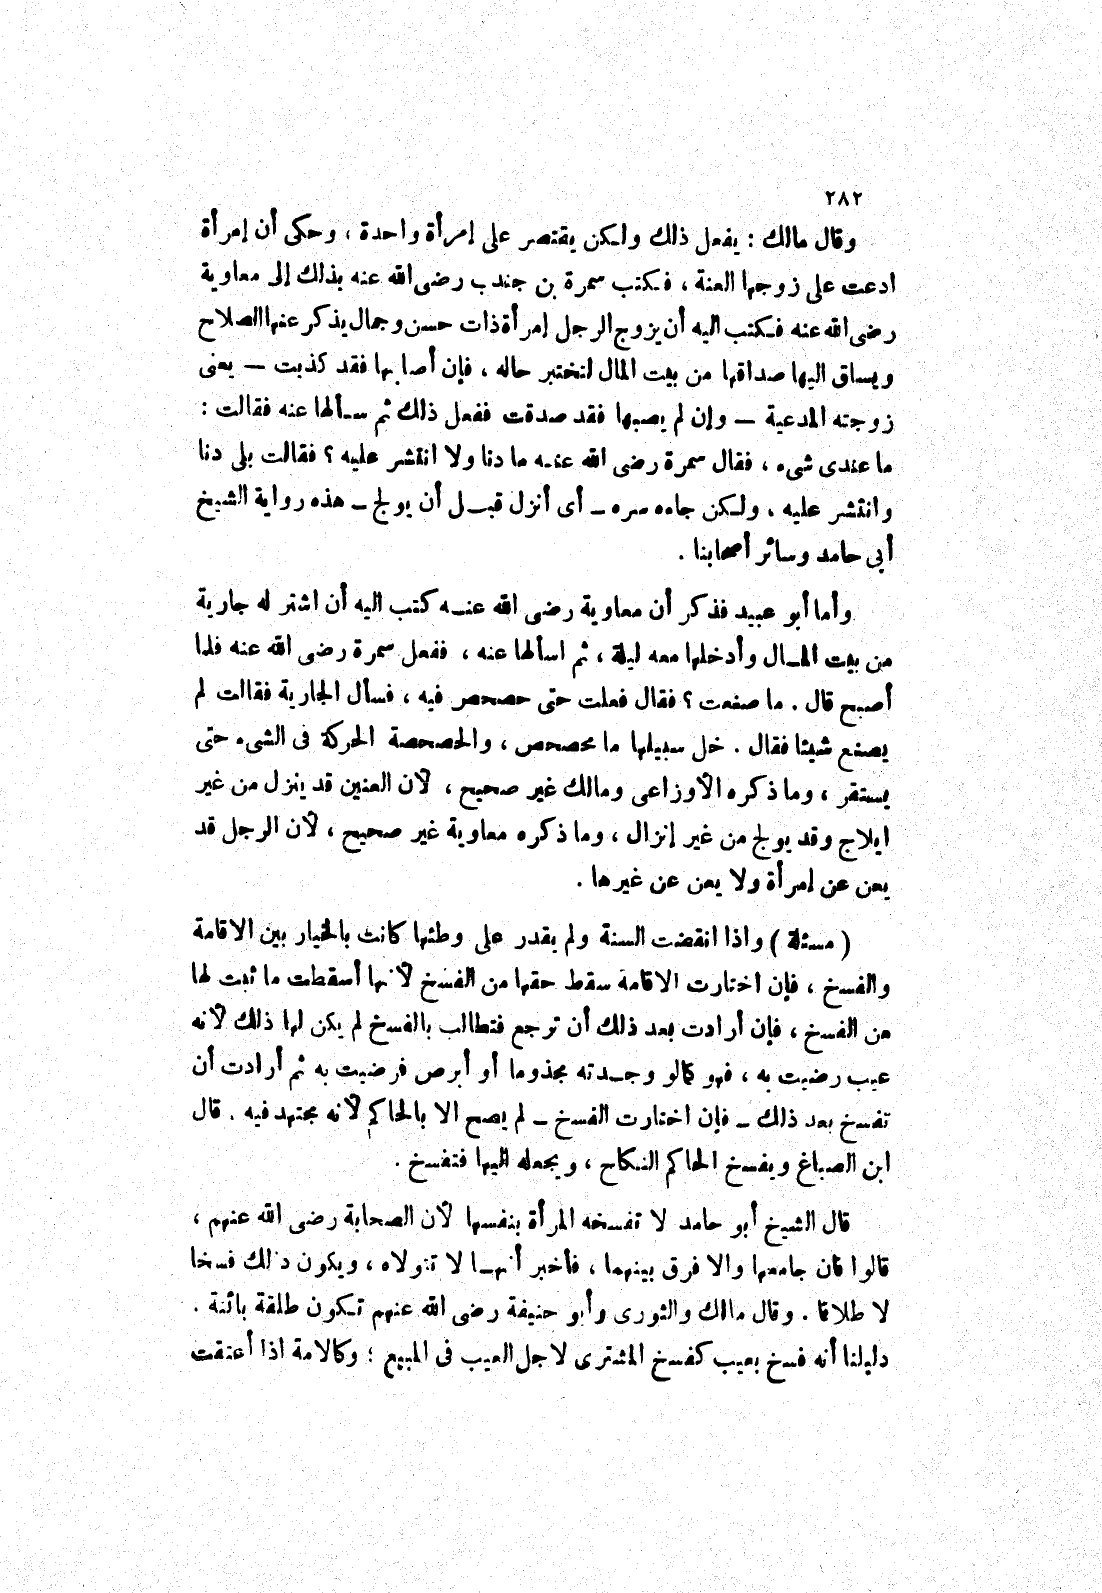 ٢٨٢
وقال مالك : يفعل ذلك ولكن يقتصر على إمرأة واحدة ، وحكى أن إمرأة
ادعت على زوجها العنة ، فكتب سمرة بن جندب رضى الله عنه بذلك إلى معاوية
رضى الله عنه فكتب اليه أن يزوج الرجل إمرأة ذات حسن وجمال يذكر عنها الصلاح
ويساق اليها صداقها من بيت المال لنختبر حاله ، فإن أصابها فقد كذبت – يعنى
زوجته المدعية – وإن لم يصبها فقد صدقت ففعل ذلك ثم سألها عنه فقالت :
ما عندى شىء ، فقال سمرة رضى الله عنه ما دنا ولا انتشر عليه ؟ فقالت بلى دنا
وانتشر عليه ، ولكن جاءه سره – أى أنزل قبل أن يولج – هذه رواية الشيخ
أبى حامد وسائر أصحابنا .
وأما أبو عبيد فذكر أن معاوية رضى الله عنه كتب اليه أن اشتر له جارية
من بيت المال وأدخلها معه ليلة ، ثم اسألها عنه ، ففعل سمرة رضى الله عنه فلما
أصبح قال . ما صنعت ؟ فقال فعلت حتى حصحص فيه ، فسأل الجارية فقالت لم
يصنع شيئا فقال . خل سبيلها ما محصحص ، والحصحصة الحركة فى الشىء حتى
يستقر ، وما ذكره الأوزاعى ومالك غير صحيح ، لأن العنين قد ينزل من غير
ايلاج وقد يولج من غير إنزال ، وما ذكره معاوية غير صحيح ، لأن الرجل قد
يعن عن إمرأة ولا يعن عن غيرها .
( مسئلة ) واذا انقضت السنة ولم يقدر على وطئها كانت بالخيار بين الاقامة
والفسخ ، فإن اختارت الاقامة سقط حقها من الفسخ لأنها أسقطت ما ثبت لها
من الفسخ ، فإن أرادت بعد ذلك أن ترجع فتطالب بالفسخ لم يكن لها ذلك لأنه
عيب رضيت به ، فهو كالو وجدته مجذوما أو أبرص فرضيت به ثم أرادت أن
تفسخ بعد ذلك – فإن اختارت الفسخ – لم يصح الا بالحاكم لأنه مجتهد فيه . قال
ابن الصباغ ويفسخ الحاكم النكاح ، ويجعله اليها فتفسخ .
قال الشيخ أبو حامد لا تفسخه المرأة بنفسها لأن الصحابة رضى الله عنهم ،
قالوا فان جامعها والا فرق بينهما ، فأخبر أنها لا تتولاه ، ويكون ذلك فسخا
لا طلاقا . وقال مالك والثورى وأبو حنيفة رضى الله عنهم تكون طلقة بائنة .
دليلنا أنه فسخ بعيب كفسخ المشترى لاجل العيب فى المبيع ؛ وكالامة اذا أعتقت